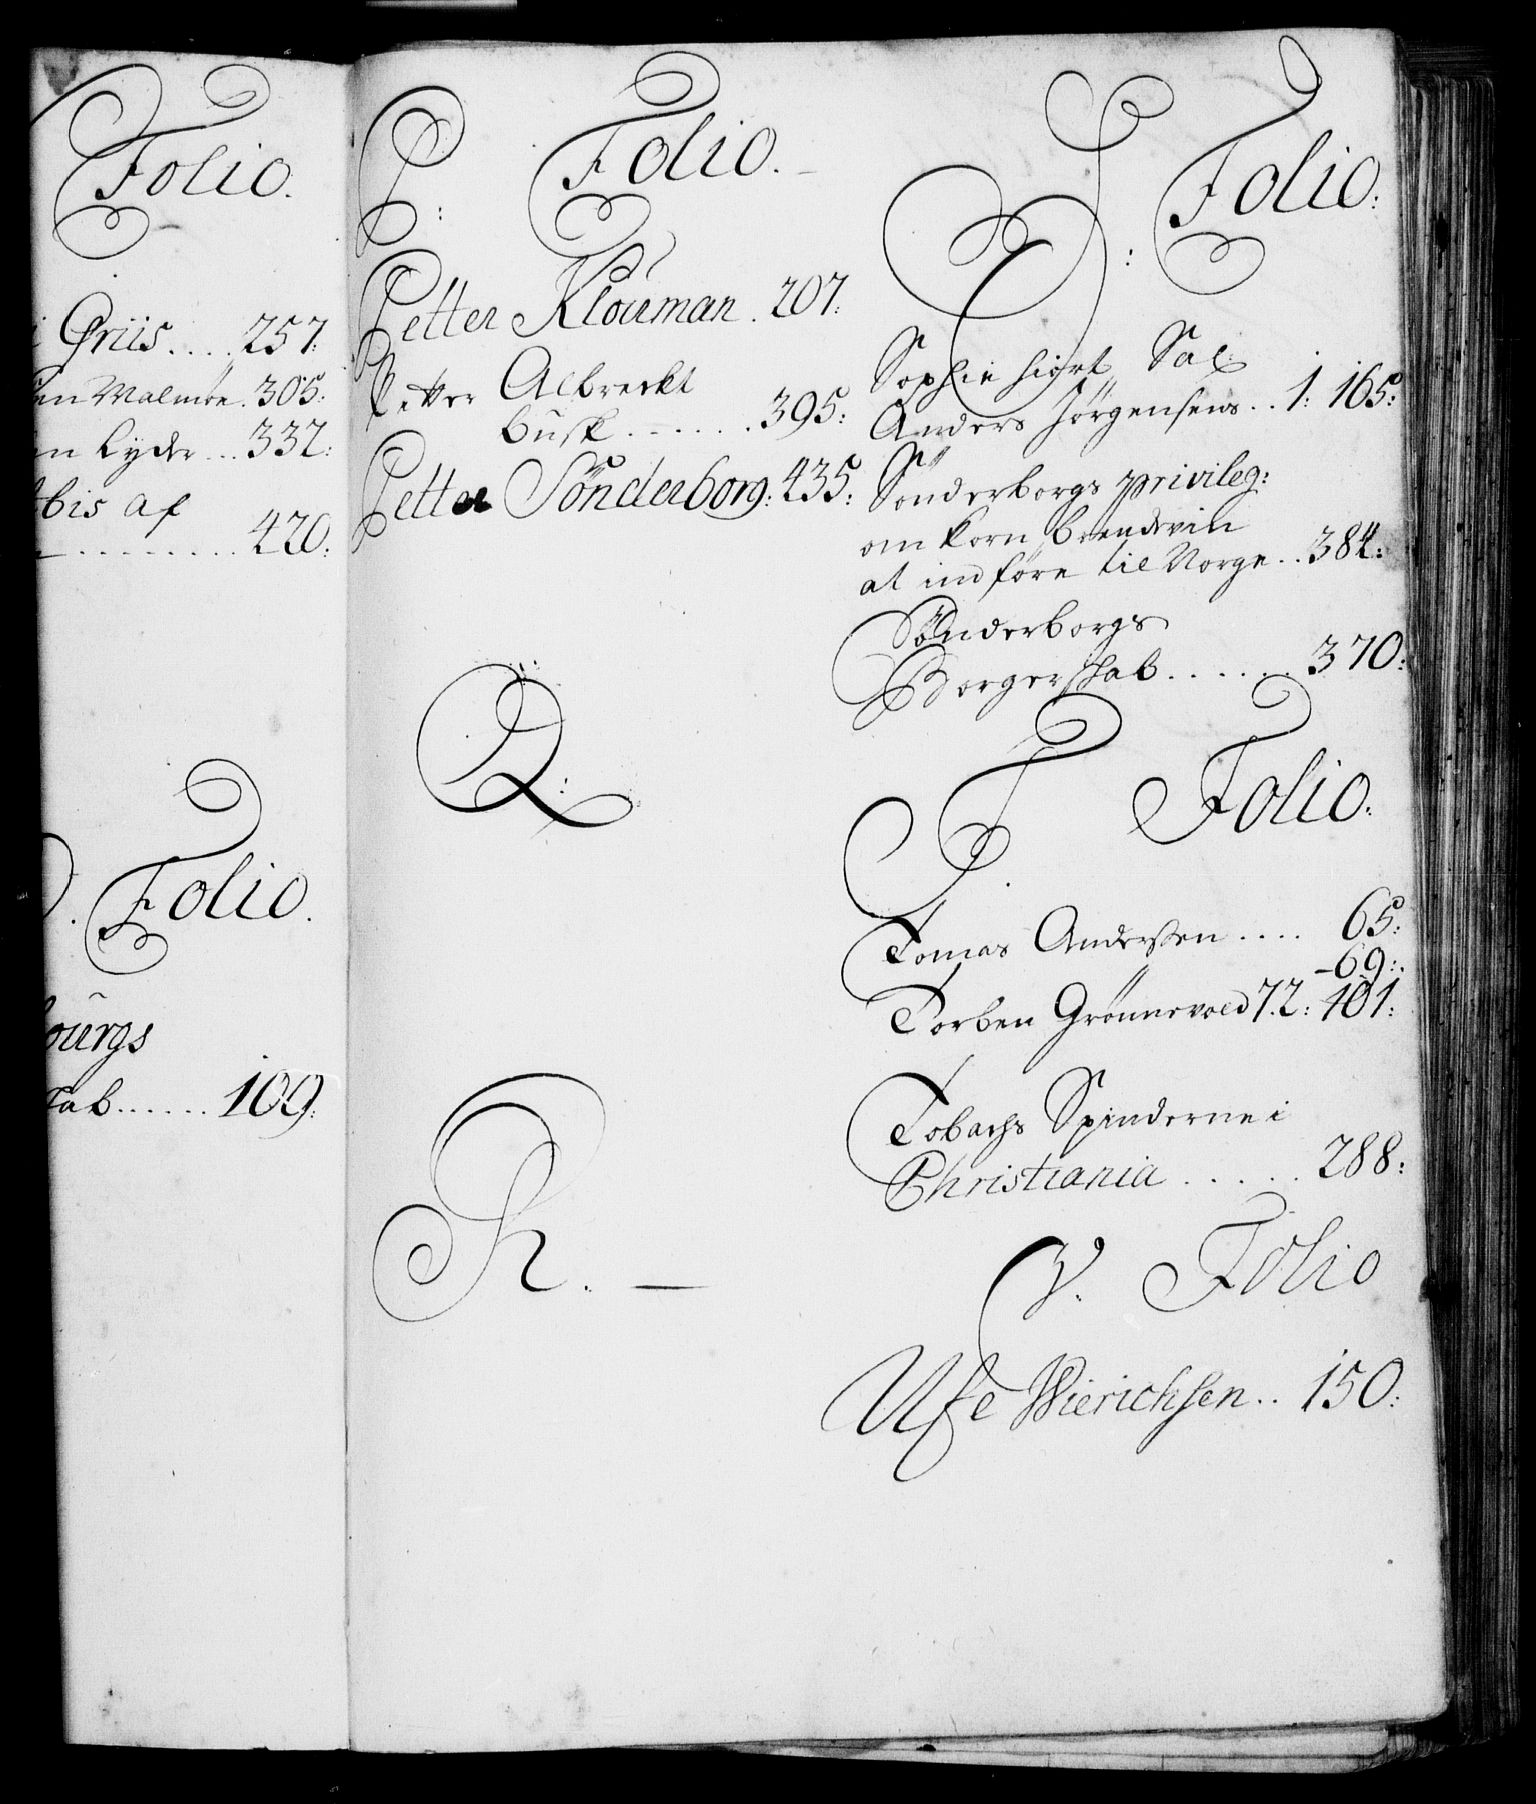 Folio.
Griis .... 257:
en Malmøe. 305:
en Lyder ... 332:
bis af
......... 420:
Folio.
bourgs
ab ...... 109:
P: Folio.
Petter Klouman. 207:
Petter Albreckt
Busk ...... 395:
Petter Sönderborg: 435:
Q:
R. —
S: Folio:
Sophie Hiort Sal:
Anders Jörgensens .. 1: 165:
Sönderborgs privileg:
om Korn brendevin
at indføre til Norge .. 384:
Sönderborgs
Borgerskab ...... 370:
T. Folio:
Tomas Anderssen .... 65:
-69:
Torben Grönnevold 72: 101:
Tobachs Spinderne i
Christiania ..... 288:
V. Folio
Ufe Wierichsen .. 150: